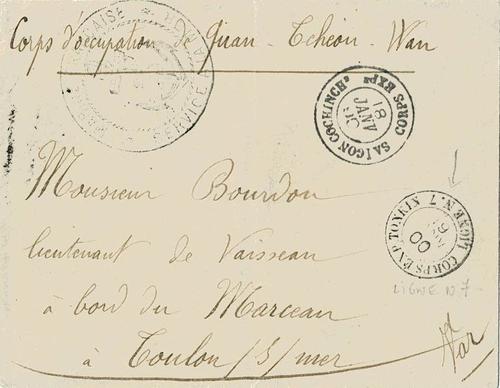 Corps d'occupation de Quan-Tcheou-Wan
SERVICE A LA MER
SAIGON COCHINCHE CORPS EXPre
18
JANV
00
CORPS EXP. TONKIN LIGNE N. 7
00
LIGNE N 7
Monsieur Bourdon
lieutenant de Vaisseau
à bord du Marceau
à Toulon /s/ mer
Var